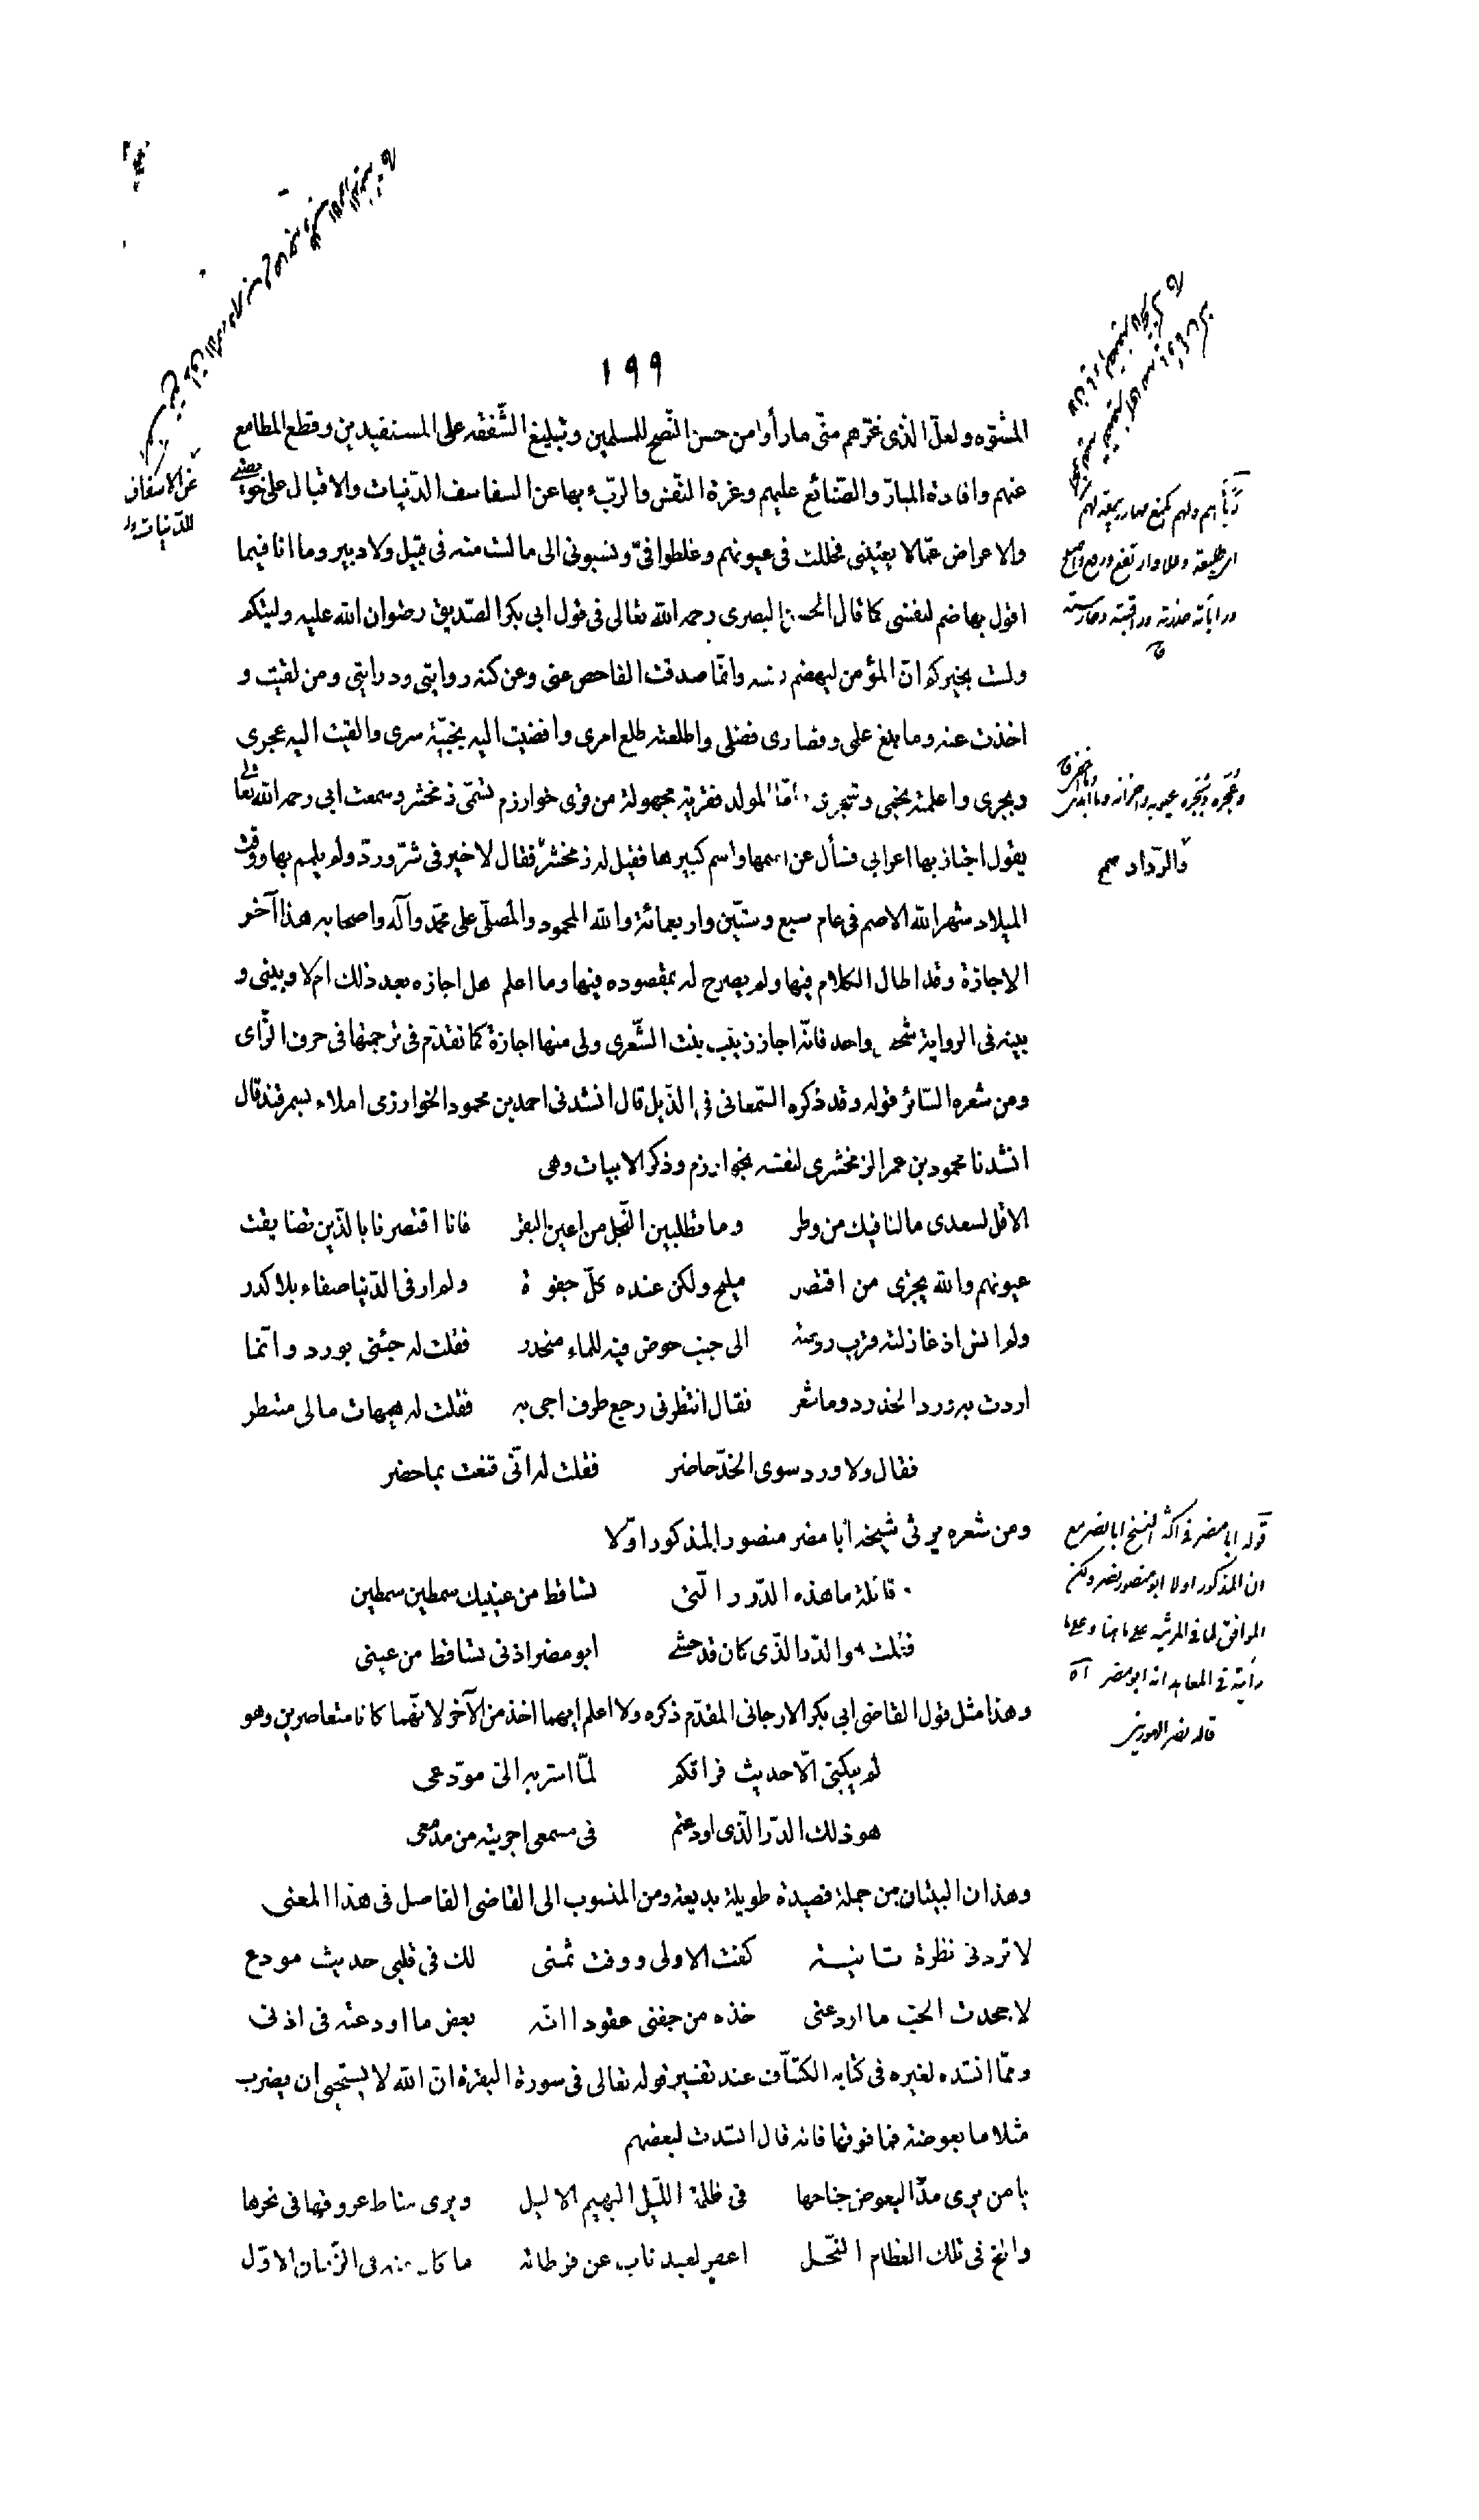 ١٩٩
المشوّه ولعلّ الذى غرّهم منّى ما رأوا من حسن النّصح للمسلمين وتبليغ الشّفقه على المستفيدين وقطع المطامع
عنهم وافادة المبارّ والصّنائع عليهم وعزة النفس والربء بها عن السفاسف الدّنيات والاقبال على خويصتى
والاعراض عمّا لا يعنينى فجللت فى عيونهم وغلطوا فىّ ونسبونى الى ما لست منه فى قبيل ولا دبير وما انا فيما
اقول بهاضم لنفسى كما قال الحسن البصرى رحمه الله تعالى فى قول ابى بكر الصّديق رضوان الله عليه وليتكم
ولست بخيركم انّ المؤمن ليهضم نفسه وانّما صدقت الفاحص عنى وعن كنه روايتى ودرايتى ومن لقيت و
اخذت عنه وما بلغ علمى وقصارى فضلى واطلعته طلع امرى وافضيت اليه بخبيّة سرى والقيت اليه عجرى
وبجرى واعلمته نجمى وشجرى وامّا المولد فقرية مجهولة من قرى خوارزم تسمّى زمخشر وسمعت ابى رحمه الله تعالى
يقول اجتاز بها اعرابى فسأل عن اسمها واسم كبيرها فقيل له زمخشر فقال لا خير فى شرّ وردّ ولم يلمم بها ووقت
الميلاد شهر الله الاصم فى عام سبع وستّين واربعمائة والله المحمود والمصلّى على محمّد وآله واصحابه هذا آخر
الاجازة وقد اطال الكلام فيها ولم يصرح له بمقصوده فيها وما اعلم هل اجازه بعد ذلك ام لا وبينى و
بينه فى الرواية شخص واحد فانّه اجاز زينب بنت الشّعرى ولى منها اجازة كما تقدّم فى ترجمتها فى حرف الزّاى
ومن شعره السّائر قوله وقد ذكره السّمعانى فى الذّيل قال انشدنى احمد بن محمود الخوارزمى املاء بسمرقند قال
انشدنا محمود بن عمر الزمخشرى لنفسه بخوارزم وذكر الابيات وهى
الا قل لسعدى ما لنا فيك من وطر وما تطلبين النّجل من اعين البقر فانا اقتصرنا بالذين تضايقت
عيونهم والله يجزى من اقتصر مليح ولكن عنده كلّ جفوة ولم ار فى الدّنيا صفاء بلا كدر
ولم انس اذ غازلته قرب روضة الى جنب حوض فيه للماء منحدر فقلت له جئنى بورد وانّما
اردت به ورد الخدود وما شعر فقال انتظرنى رجع طرف اجى به فقلت له هيهات مالى منتظر
فقال ولا ورد سوى الخدّ حاضر فقلت له انّى قنعت بما حضر
ومن شعره يرثى شيخه ابا مضر منصور المذكور اوّلا
وقائلة ما هذه الدّرر الّتى تساقط من عينيك سمطين سمطين
فقلت هو الدّر الذّى كان قد حشى ابو مضر اذنى تساقط من عينى
وهذا مثل قول القاضى ابى بكر الارجانى المقدّم ذكره ولا اعلم ايهما اخذ من الآخر لانّهما كانا متعاصرين وهو
لم يبكنى الّا حديث فراقكم لمّا اسرّ به الىّ مودّعى
هو ذلك الدرّ الّذى اودعتم فى مسمعى اجريته من مدمعى
وهذان البيتان من جملة قصيدة طويلة بديعة ومن المنسوب الى القاضى الفاضل فى هذا المعنى
لا تزدنى نظرة ثانيـة كفت الاولى ووفت ثمنى لك فى قلبى حديث مودع
لا جحدت الحبّ ما اودعنى خذه من جفنى عقودا انّه بعض ما اودعته فى اذنى
وممّا انشده لغيره فى كتابه الكشّاف عند تفسير قوله تعالى فى سورة البقرة انّ الله لا يستحيى ان يضرب
مثلا ما بعوضة فما فوقها فانه قال انشدت لبعضهم
يا من يرى مدّ البعوض جناحها فى ظلمة اللّيل البهيم الاليل ويرى مناط عروقها فى نحرها
والمخ فى تلك العظام النحّل اغفر لعبد تاب عن فرطاته ما كان منه فى الزّمان الاوّل
عن الاسفاف
للدّنيات
والرّداد صح
قوله ابا مضر فى اكثر النسخ ابا نصر مع
ان المذكور اولا ابو منصور نصر ولكن
الموافق لما فى المرثيه على ما هنا وعلى ما
رأيته فى المعاهد انه ابو مضر اه
قاله نصر الهورينى